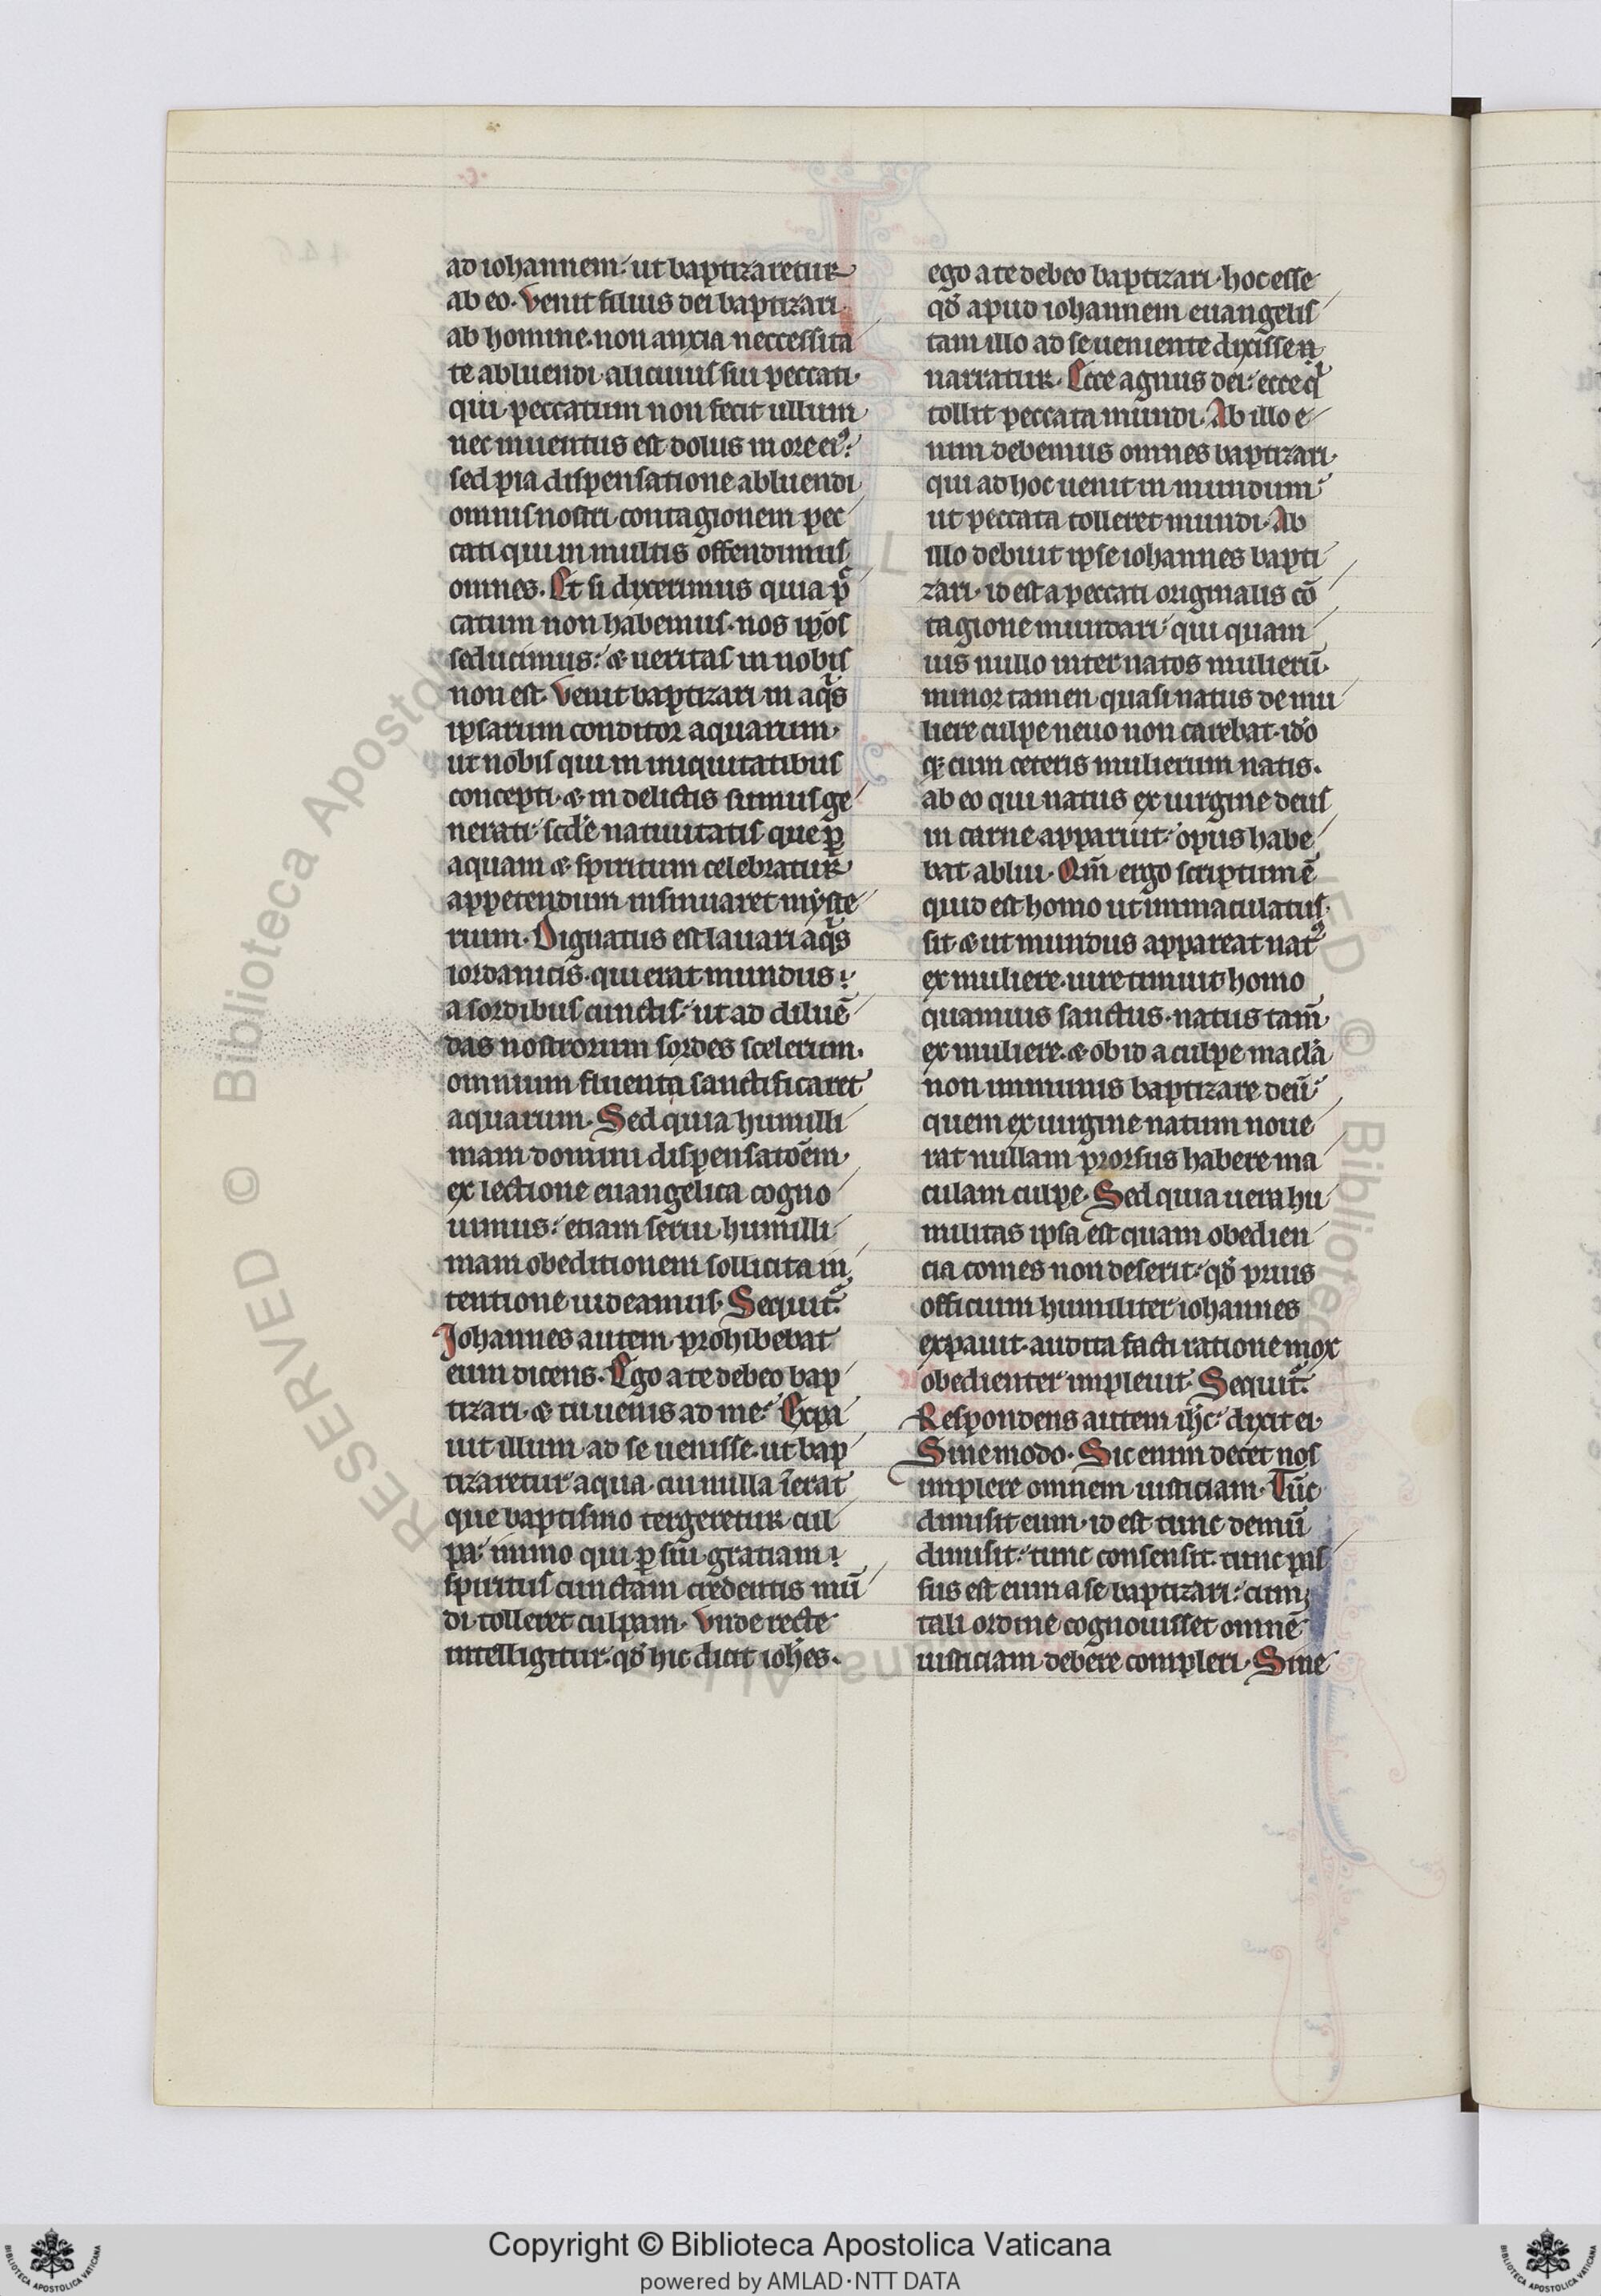 ad iohannem: ut baptizaretur
ab eo. Venit filius dei baptizari
ab homine. non anxia neccessita
te abluendi alicuius sui peccati.
qui peccatum non fecit ullum
nec inuentus est dolus in ore eiꝰ:
sed pia dispensatione abluendi
omnis nostri contagionem pec
cati qui in multis offendimus
omnes. Et si dixerimus quia pͨ
catum non habemus. nos ip̄os
seducimus: & ueritas in nobis
non est. Venit baptizari in aqͣs
ipsarum conditor aquarum.
ut nobis qui in iniquitatibus
concepti. & in delictis sumus ge
nerati: scd̓e natiuitatis que ꝑ
aquam & spiritum celebratur
appetendum insinuaret myste
rium. Dignatus est lauari aqͣs
iordanicis. qui erat mundus:
a sordibus cunctis: ut ad diluē
das nostrorum sordes scelerum.
omnium fluenta sanctificaret
aquarum. Sed quia humilli
mam domini dispensatōem.
ex lectione euangelica cogno
uimus: etiam serui humilli
mam obeditionem sollicita in
tentione uideamus. Sequit᷑.
Johannes autem prohibebat
eum dicens. Ego a te debeo bap
tizari. & tu uenis ad me: Expa
uit illum ad se uenisse. ut bap
tizaretur aqua. cui nulla īerat
que baptismo tergeretur cul
pa: immo qui ꝑ sūi gratiam:
spiritus cunctam credentis mū
di tolleret culpam. Vnde recte
intelligitur. qd̓ hic dicit ioh̓es.
ego a te debeo baptizari. hoc esse
qd̓ apud iohannem euangelis
tam illo ad se ueniente dixisse
narratur. Ecce agnus dei: ecce qͥ
tollit peccata mundi. Ab illo e
nim debemus omnes baptizari.
qui ad hoc uenit in mundum:
ut peccata tolleret mundi. Ab
illo debuit ipse iohannes bapti
zari. id est a peccati originalis cō
tagione mundari: qui quam
uis nullo inter natos mulierū.
minor tamen quasi natus de mu
liere culpe neuo non carebat. id̓o
qꝫ cum ceteris mulierum natis.
ab eo qui natus ex uirgine deus
in carne apparuit: opus habe
bat ablui. Qm̄ ergo scriptum ē
quid est homo ut immaculatus
sit. & ut mundus appareat natꝰ
ex muliere. iure timuit homo
quamuis sanctus. natus tam̄
ex muliere. & ob id a culpe macl̓a
non immunis baptizare deū:
quem ex uirgine natum noue
rat nullam prorsus habere ma
culam culpe. Sed quia uera hu
militas ipsa est quam obedien
cia comes non deserit: qd̓ prius
officium humiliter iohannes
expauit. audita facti ratione mox
obedienter impleuit. Sequit᷑.
Respondens autem ih̓c: dixit ei.
Sine modo. Sic enim decet nos
implere omnem iusticiam. Tūc
dimisit eum. id est tunc demū
dimisit: tunc consensit. tunc pas
sus est eum a se baptizari: cum
tali ordine cognouisset omnē
iusticiam debere compleri. Sine
Copyright © Biblioteca Apostolica Vaticana
powered by AMLAD·NTT DATA